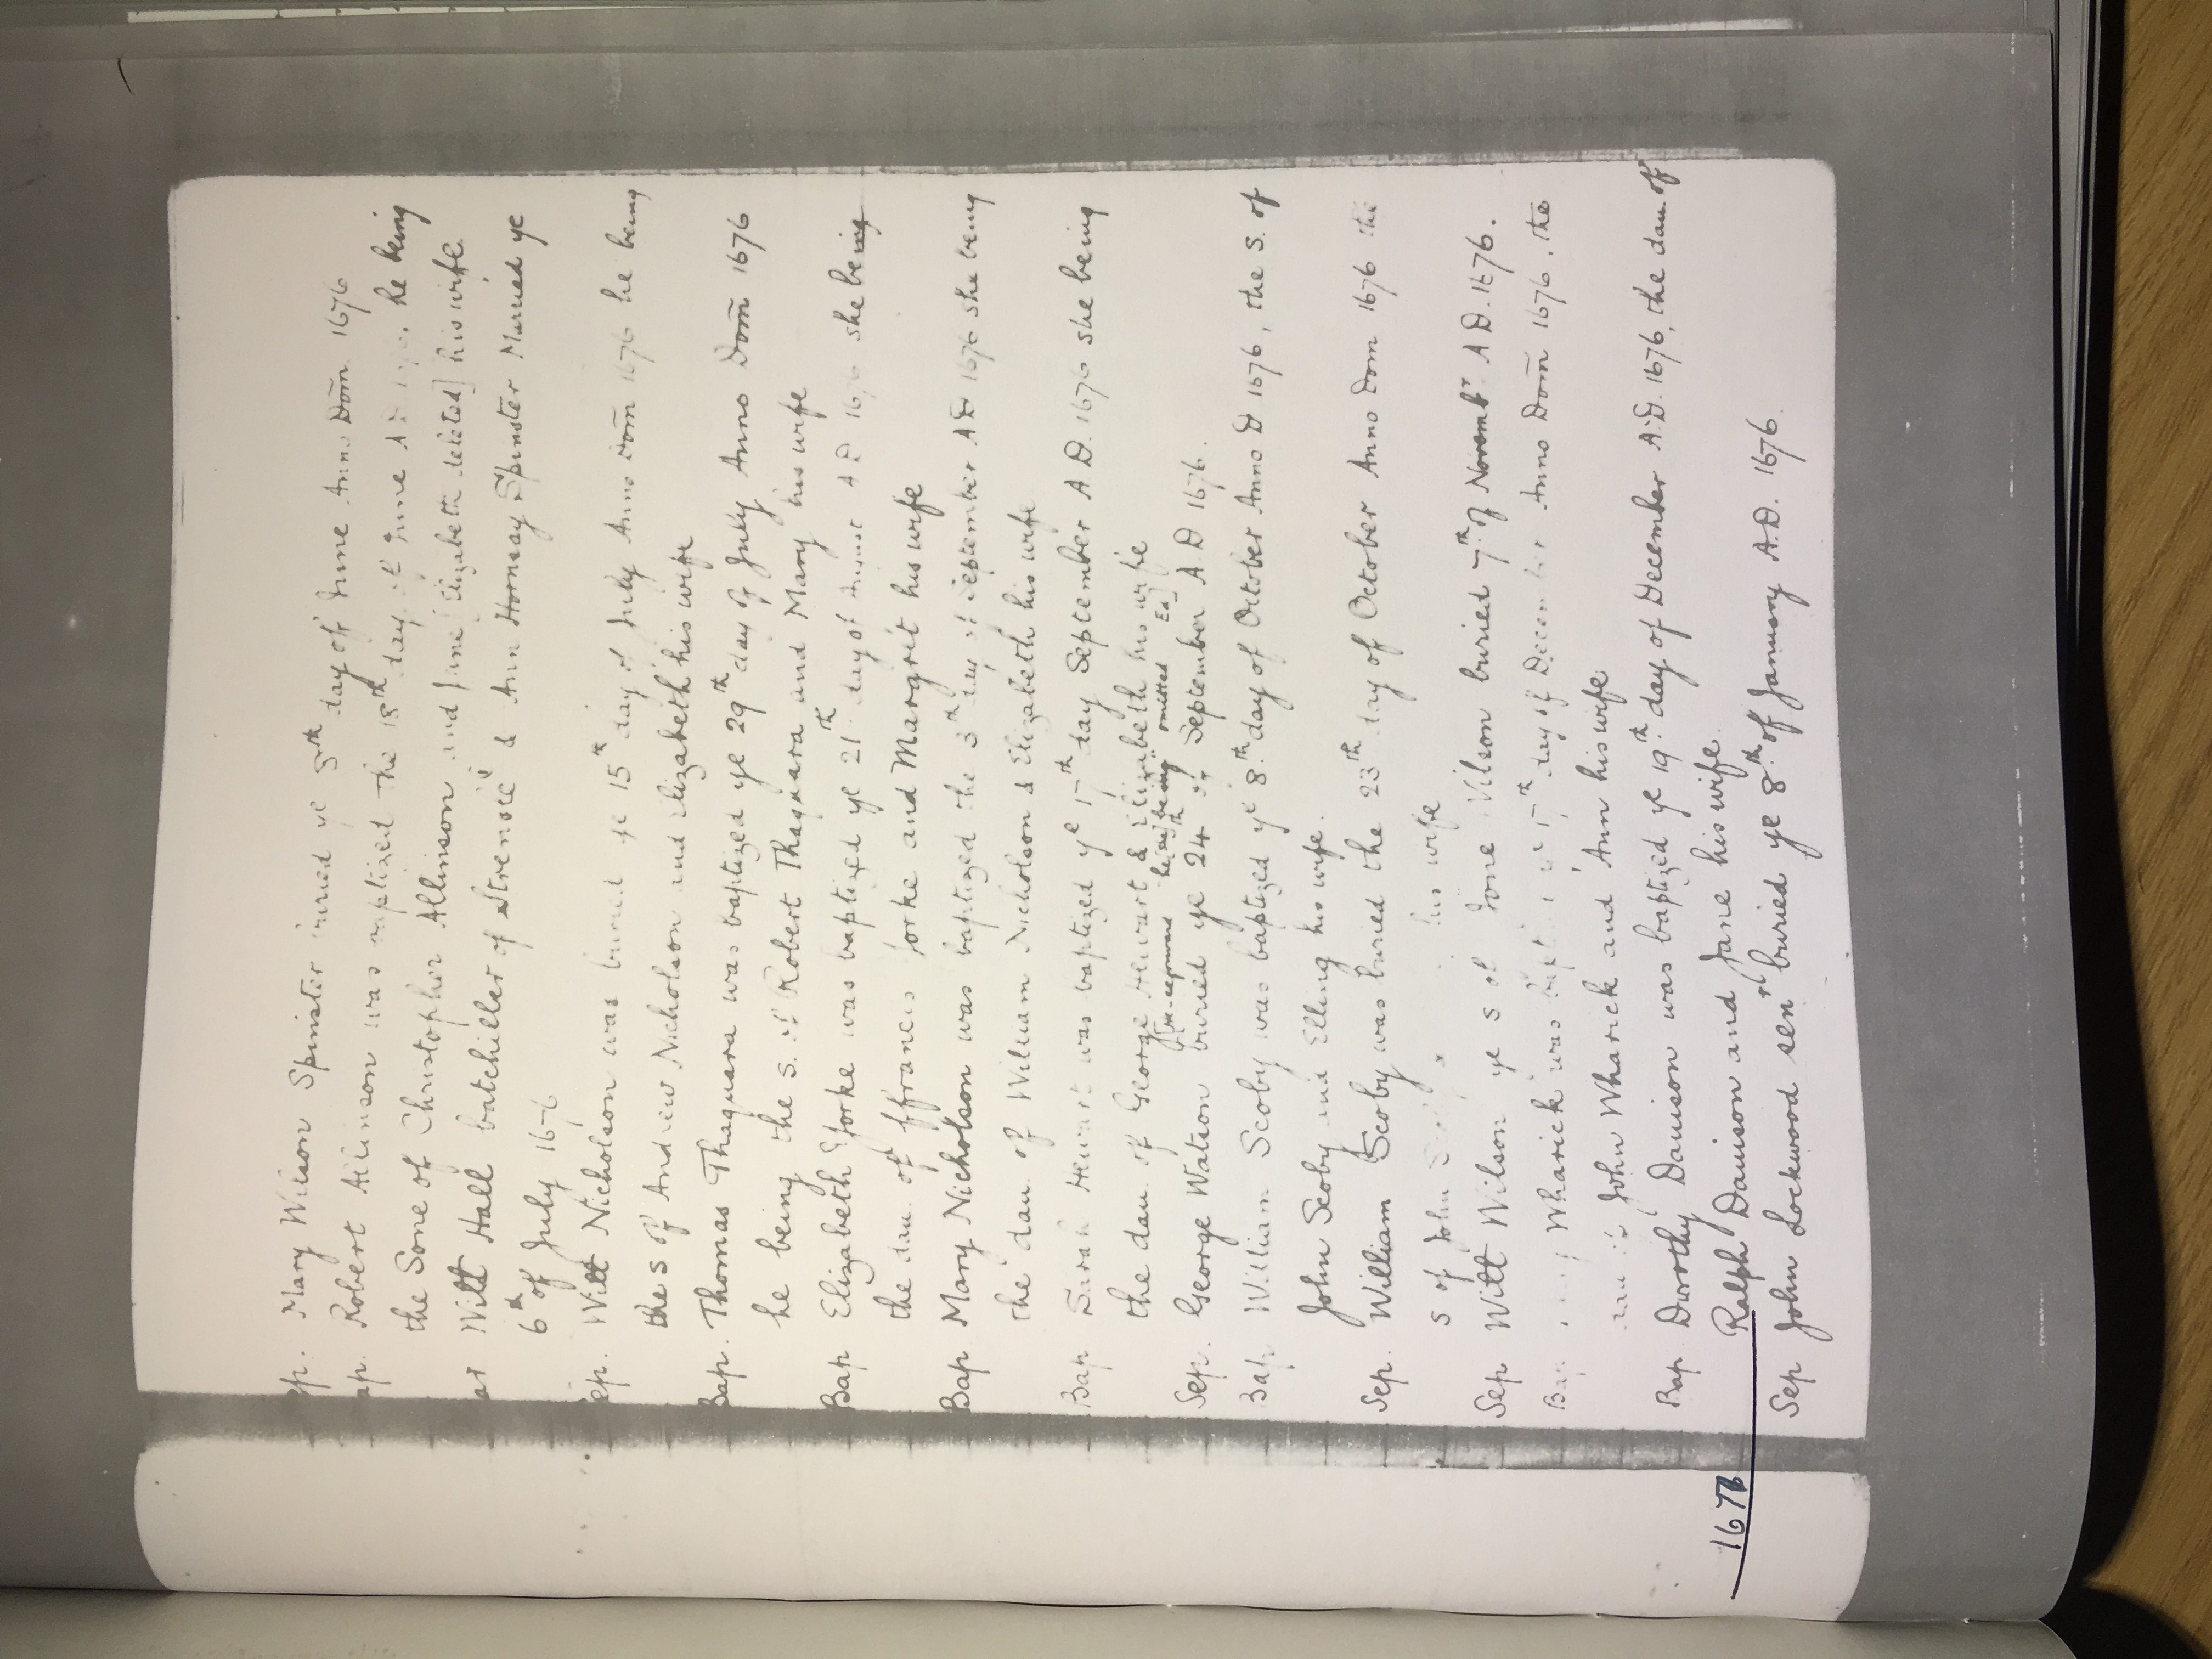 ep. Mary Wilson Spinister buried ye 8th day of June Anno Dom̄ 1676
ap. Robert Allinson was baptized the 18th day of June A D 1676, he being
the Sone of Christopher Allinson and Jane [Elizabeth deleted] his wife.
ar Willt Hall batchiller of & Ann Honsay Spinster Married ye
6th of July 1676
ep. Willt Nicholson was buried ye 15th day of July Anno Dom̄ 1676 he being
the s of Andrew Nicholson and Elizabeth his wife
Bap. Thomas Thaquara was baptized ye 29th day of July Anno Dom̄ 1676
he being the s. of Robert Thaquara and Mary his wife
Bap Elizabeth Yorke was baptized ye 21th day of August A D 1676 she being
the dau. of ffrances Yorke and Margrit his wife
Bap Mary Nicholson was baptized the 3th day of September A D 1676 she being
the dau. of William Nicholson & Elizabeth his wife
Bap Sarah Hewart was baptized ye 17th day September A.D. 1676 she being
the dau. of George Hewart & Elizabeth his wife
being" omitted Ed]
Sep. George Watson buried ye 24th of September A D 1676.
Bap William Scoby was baptized ye 8th day of October Anno D 1676, the s. of
John Scoby and Elling his wife.
Sep. William Scoby was buried the 23th day of October Anno Dom 1676 the
s of John his wife
Sep Willt Wilson ye s of Wilson buried 7th of Novembr. A D. 1676.
Bap Wharick was ye 17th day of December Anno Dom̄ 1676, the
John Wharick and Ann his wife
Bap. Dorothy Davison was baptized ye 19th day of December A.D. 1676, the dau. of
1676 Ralph Davison and Jane his wife.
Sep John Lockwood senr buried ye 8th of January A.D. 1676.